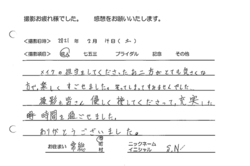 撮影お疲れ様でした。 感想をお願いいたします。
<撮影日時> 2021年 2月 14日(日)
<撮影項目> 成人 七五三 ブライダル 記念 その他
メイクの担当をしてくださったお二方がとても気さくな
方で、楽しくすごせました。
撮影も皆さん優しく接してくださって、充実した
時間を過ごせました。
ありがとうございました。
お住まい 常総 市 ニックネーム
イニシャル S.N